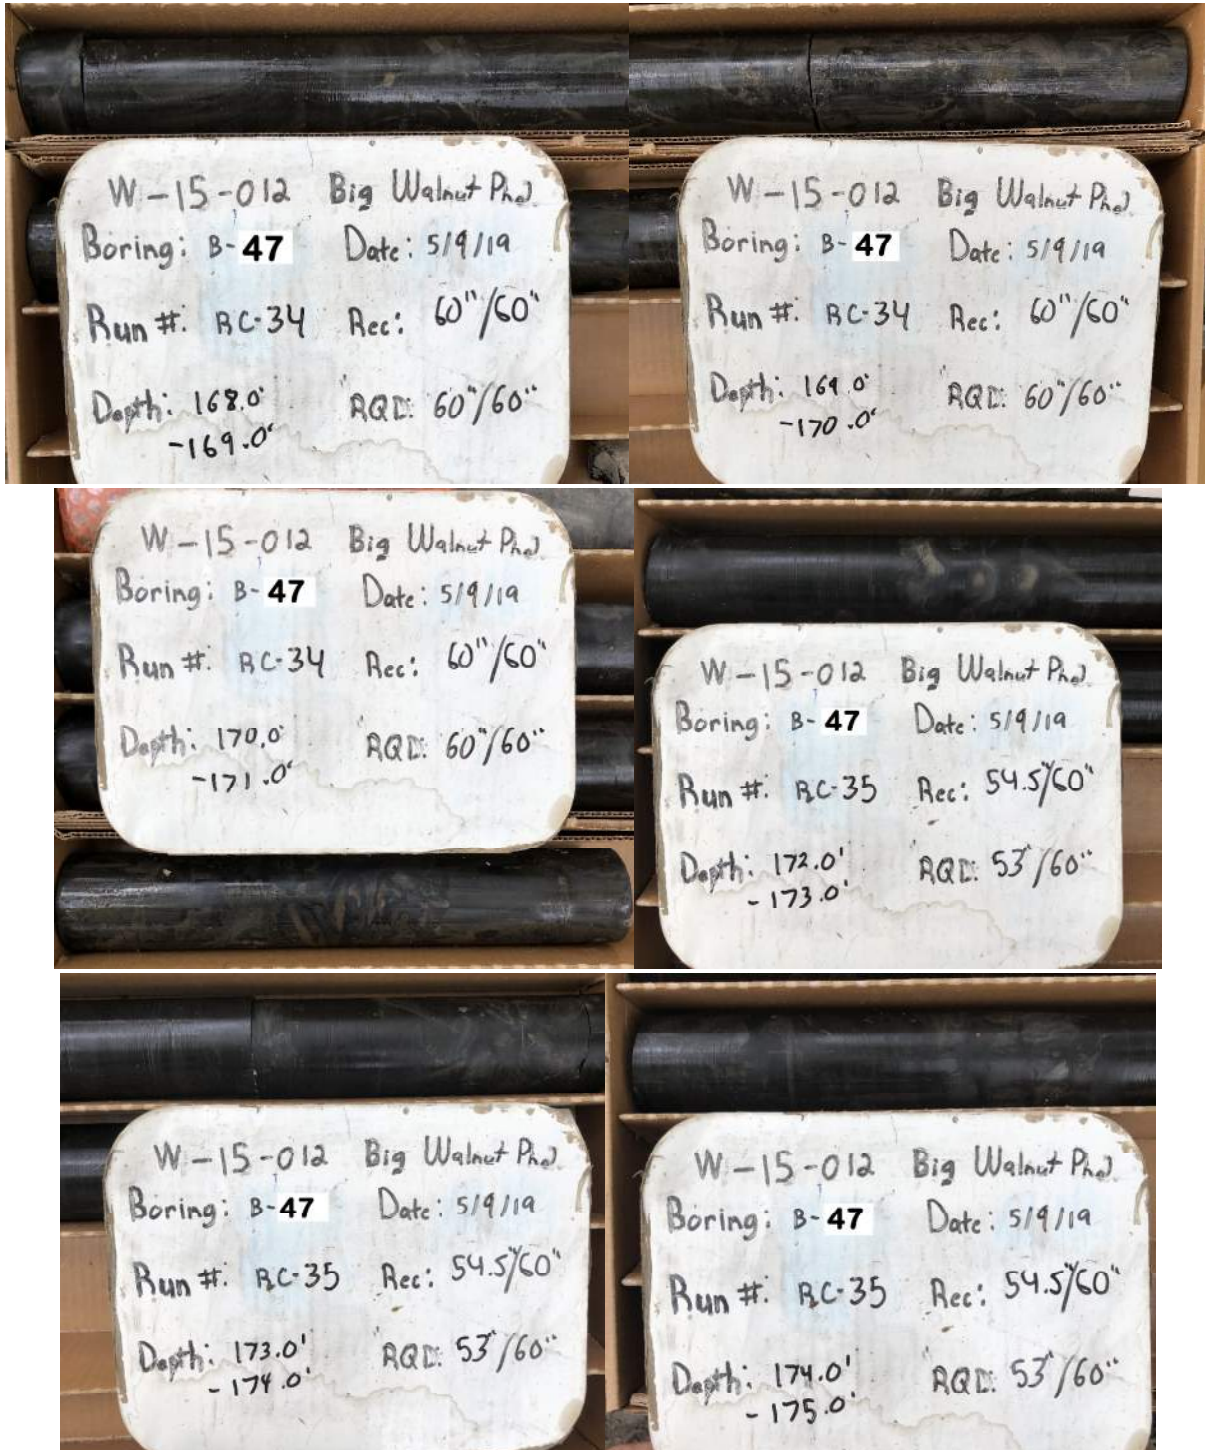 W-15-012 Big Walnut Ph2
Boring: B-47 Date: 5/9/19
Run #: RC-34 Rec: 60"/60"
Depth: 168.0' RQD: 60"/60"
-169.0'
W-15-012 Big Walnut Ph2
Boring: B-47 Date: 5/9/19
Run #: RC-34 Rec: 60"/60"
Depth: 169.0' RQD: 60"/60"
-170.0'
W-15-012 Big Walnut Ph2
Boring: B-47 Date: 5/9/19
Run #: RC-34 Rec: 60"/60"
Depth: 170.0' RQD: 60"/60"
-171.0'
W-15-012 Big Walnut Ph2
Boring: B-47 Date: 5/9/19
Run #: RC-35 Rec: 54.5"/60"
Depth: 172.0' RQD: 53"/60"
- 173.0'
W-15-012 Big Walnut Ph2
Boring: B-47 Date: 5/9/19
Run #: RC-35 Rec: 54.5"/60"
Depth: 173.0' RQD: 53"/60"
- 174.0'
W-15-012 Big Walnut Ph2
Boring: B-47 Date: 5/9/19
Run #: RC-35 Rec: 54.5"/60"
Depth: 174.0' RQD: 53"/60"
- 175.0'